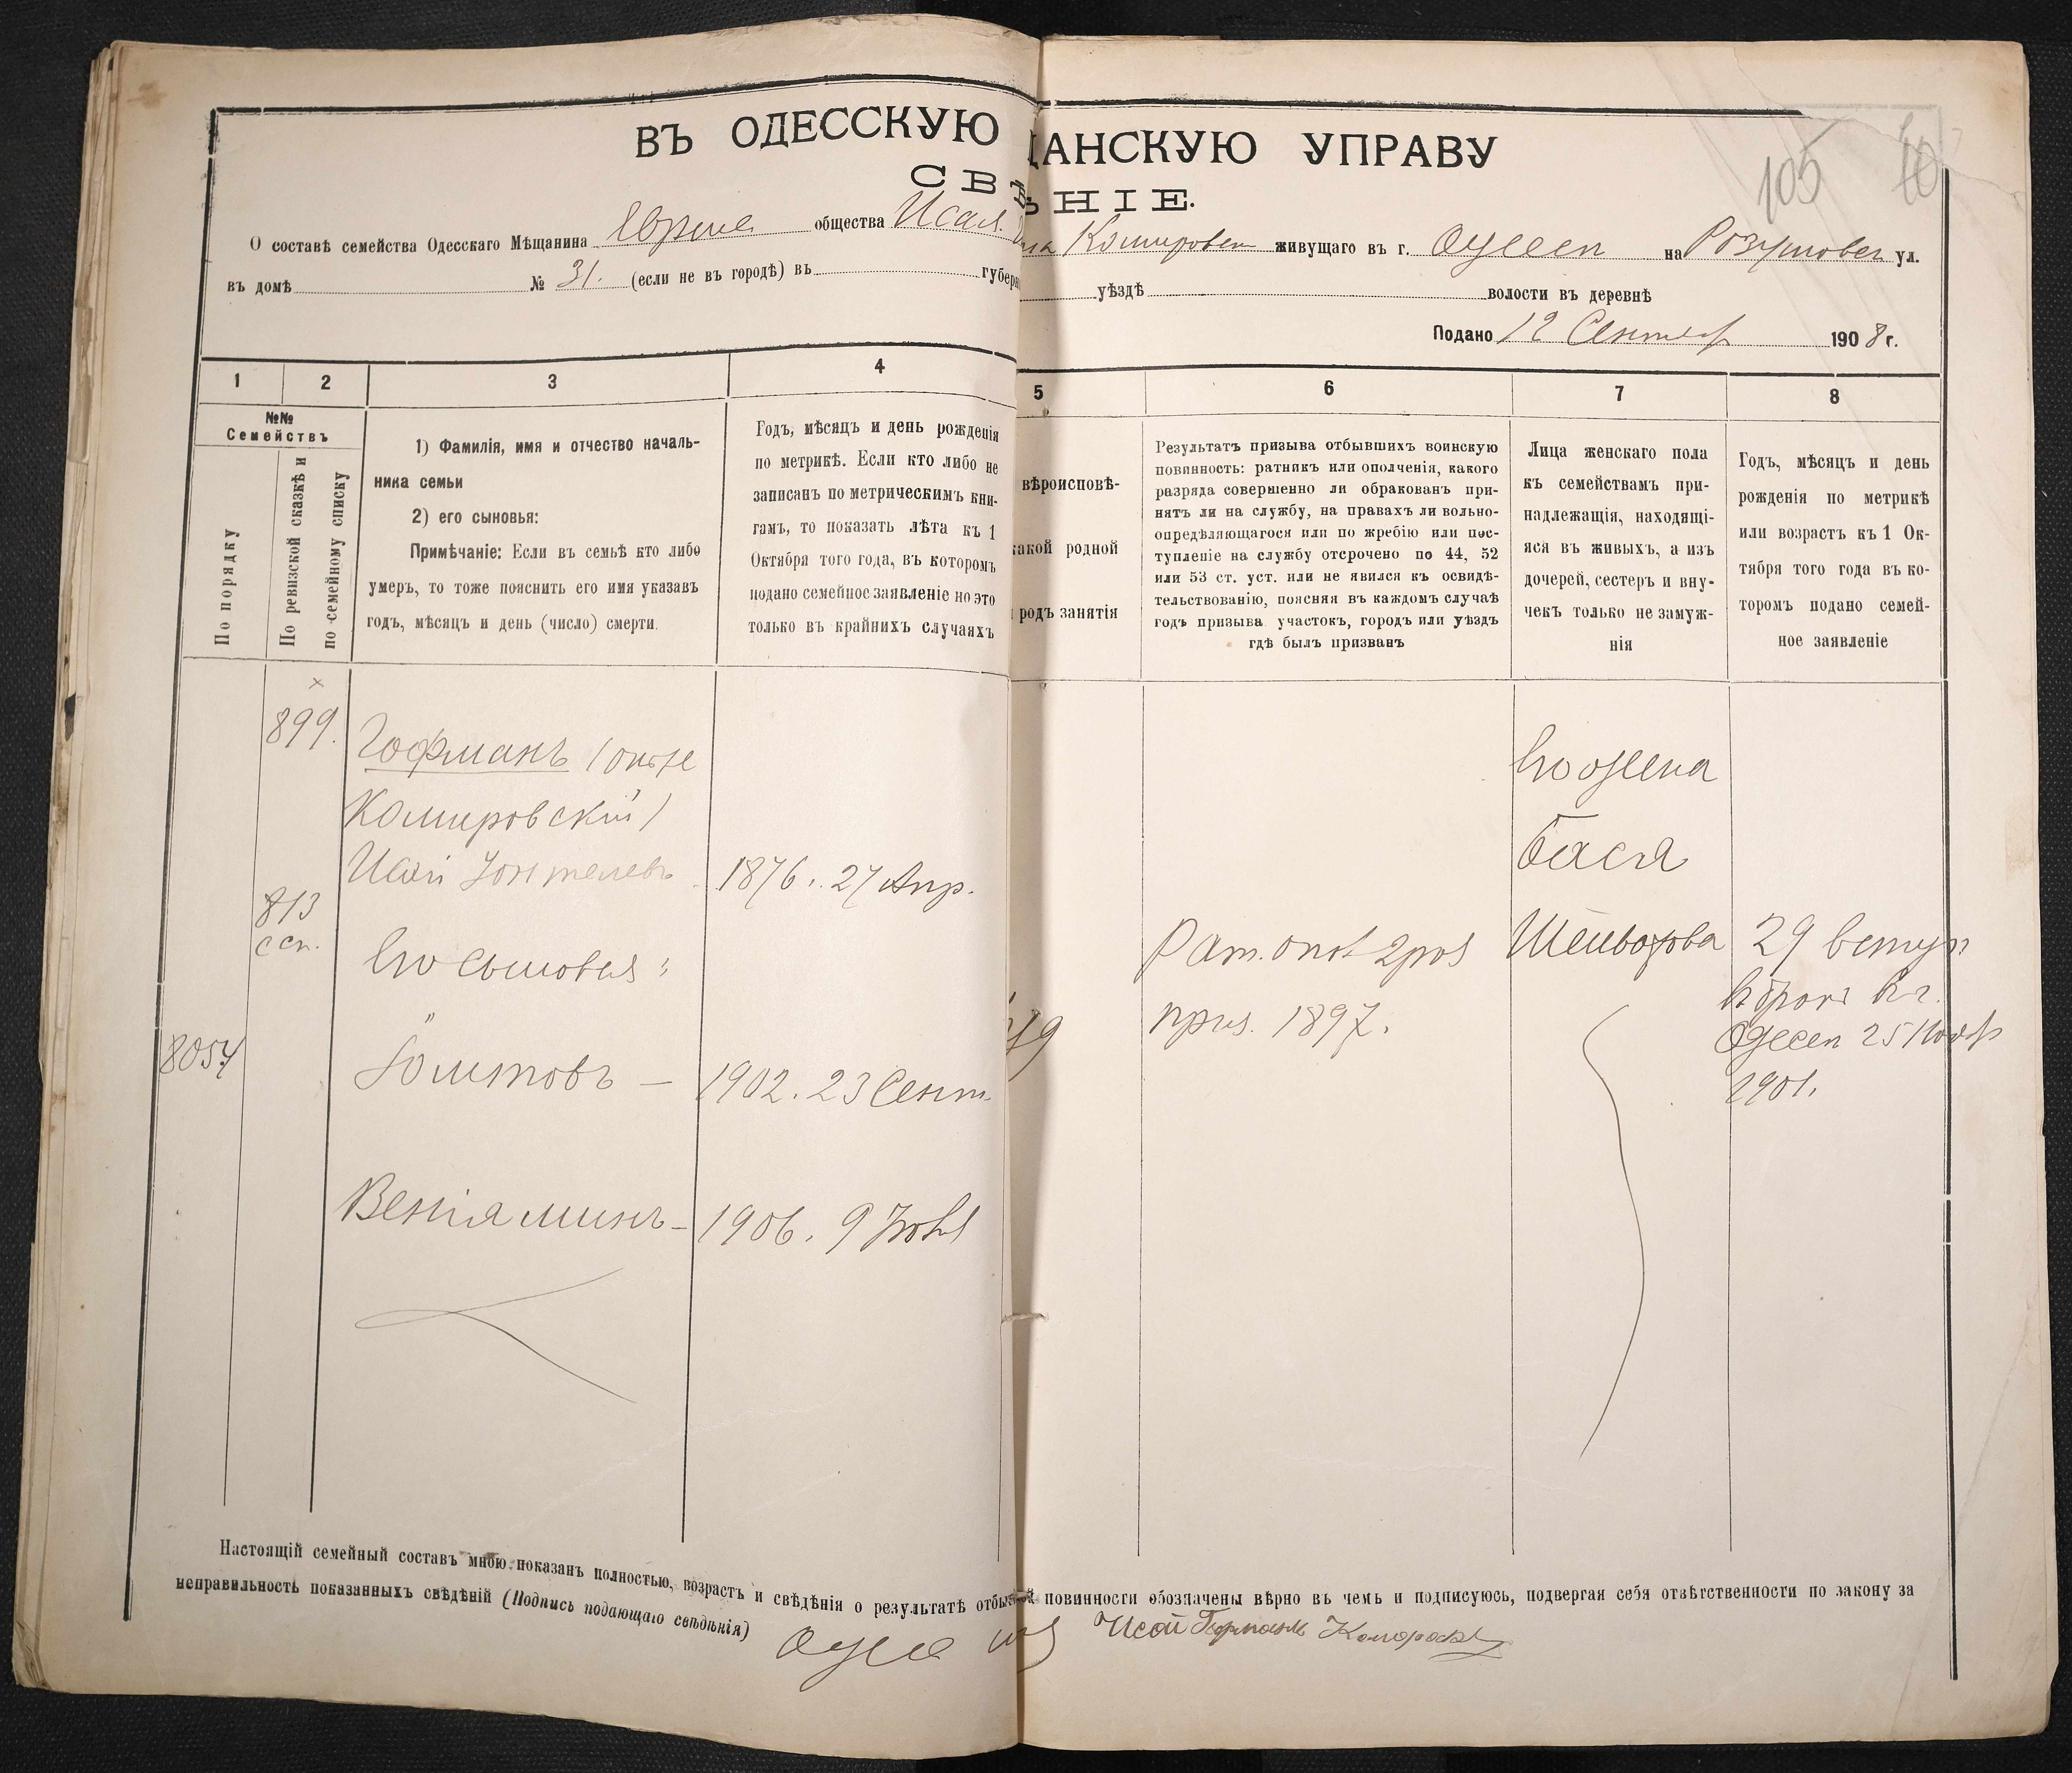 ВЪ ОДЕССКУЮ ЩАНСКУЮ УПРАВУ
СВѢ НІЕ.
105 10
О составѣ семейства Одесскаго Мѣщанина общества Исая Комировск живущаго въ г. Одессѣ на Розумовск ул.
въ домѣ № 31. (если не въ городѣ) въ губерн уѣздѣ волости въ деревнѣ
Подано 12 Сентябр 1908 г.
1 2 3 4 5 6 7 8
№№
Семействъ
По порядку
По ревизской сказкѣ и
по семейному списку
1) Фамилія, имя и отчество началь-
ника семьи
2) его сыновья:
Примѣчаніе: Если въ семьѣ кто либо
умеръ, то тоже пояснить его имя указавъ
годъ, мѣсяцъ и день (число) смерти.
Годъ, мѣсяцъ и день рожденія
по метрикѣ. Если кто либо не
записанъ по метрическимъ кни-
гамъ, то показать лѣта къ 1
Октября того года, въ которомъ
подано семейное заявленіе но это
только въ крайнихъ случаяхъ
вѣроисповѣ-
какой родной
родъ занятія
Результатъ призыва отбывшихъ воинскую
повинность: ратникъ или ополченія, какого
разряда совершенно ли обракованъ при-
нятъ ли на службу, на правахъ ли вольно-
опредѣляющагося или по жребію или пос-
тупленіе на службу отсрочено по 44, 52
или 53 ст. уст. или не явился къ освидѣ-
тельствованію, поясняя въ каждомъ случаѣ
годъ призыва участокъ, городъ или уѣздъ
гдѣ былъ призванъ
Лица женскаго пола
къ семействамъ при-
надлежащія, находящі-
яся въ живыхъ, а изъ
дочерей, сестеръ и вну-
чекъ только не замуж-
нія
Годъ, мѣсяцъ и день
рожденія по метрикѣ
или возрастъ къ 1 Ок-
тября того года въ ко-
торомъ подано семей-
ное заявленіе
899.
Гофманъ (онъ же
Комировскій)
Исай 1876. 27 Апр.
813
ссп.
Его сыновья:
8054
1902. 23 Сент.
Веніаминъ – 1906. 9
Рат. опол 2 раз
приз. 1897.
Его жена
Бася
29 вступ
въ бракъ въ г.
Одессѣ 25 Нояб
1901.
Настоящій семейный составъ мною показанъ полностью, возрастъ и свѣдѣнія о результатѣ отбытой повинности обозначены вѣрно въ чемъ и подписуюсь, подвергая себя отвѣтственности по закону за
неправильность показанныхъ свѣдѣній (Подпись подающаго свѣдѣнія)
Исай Гофманъ